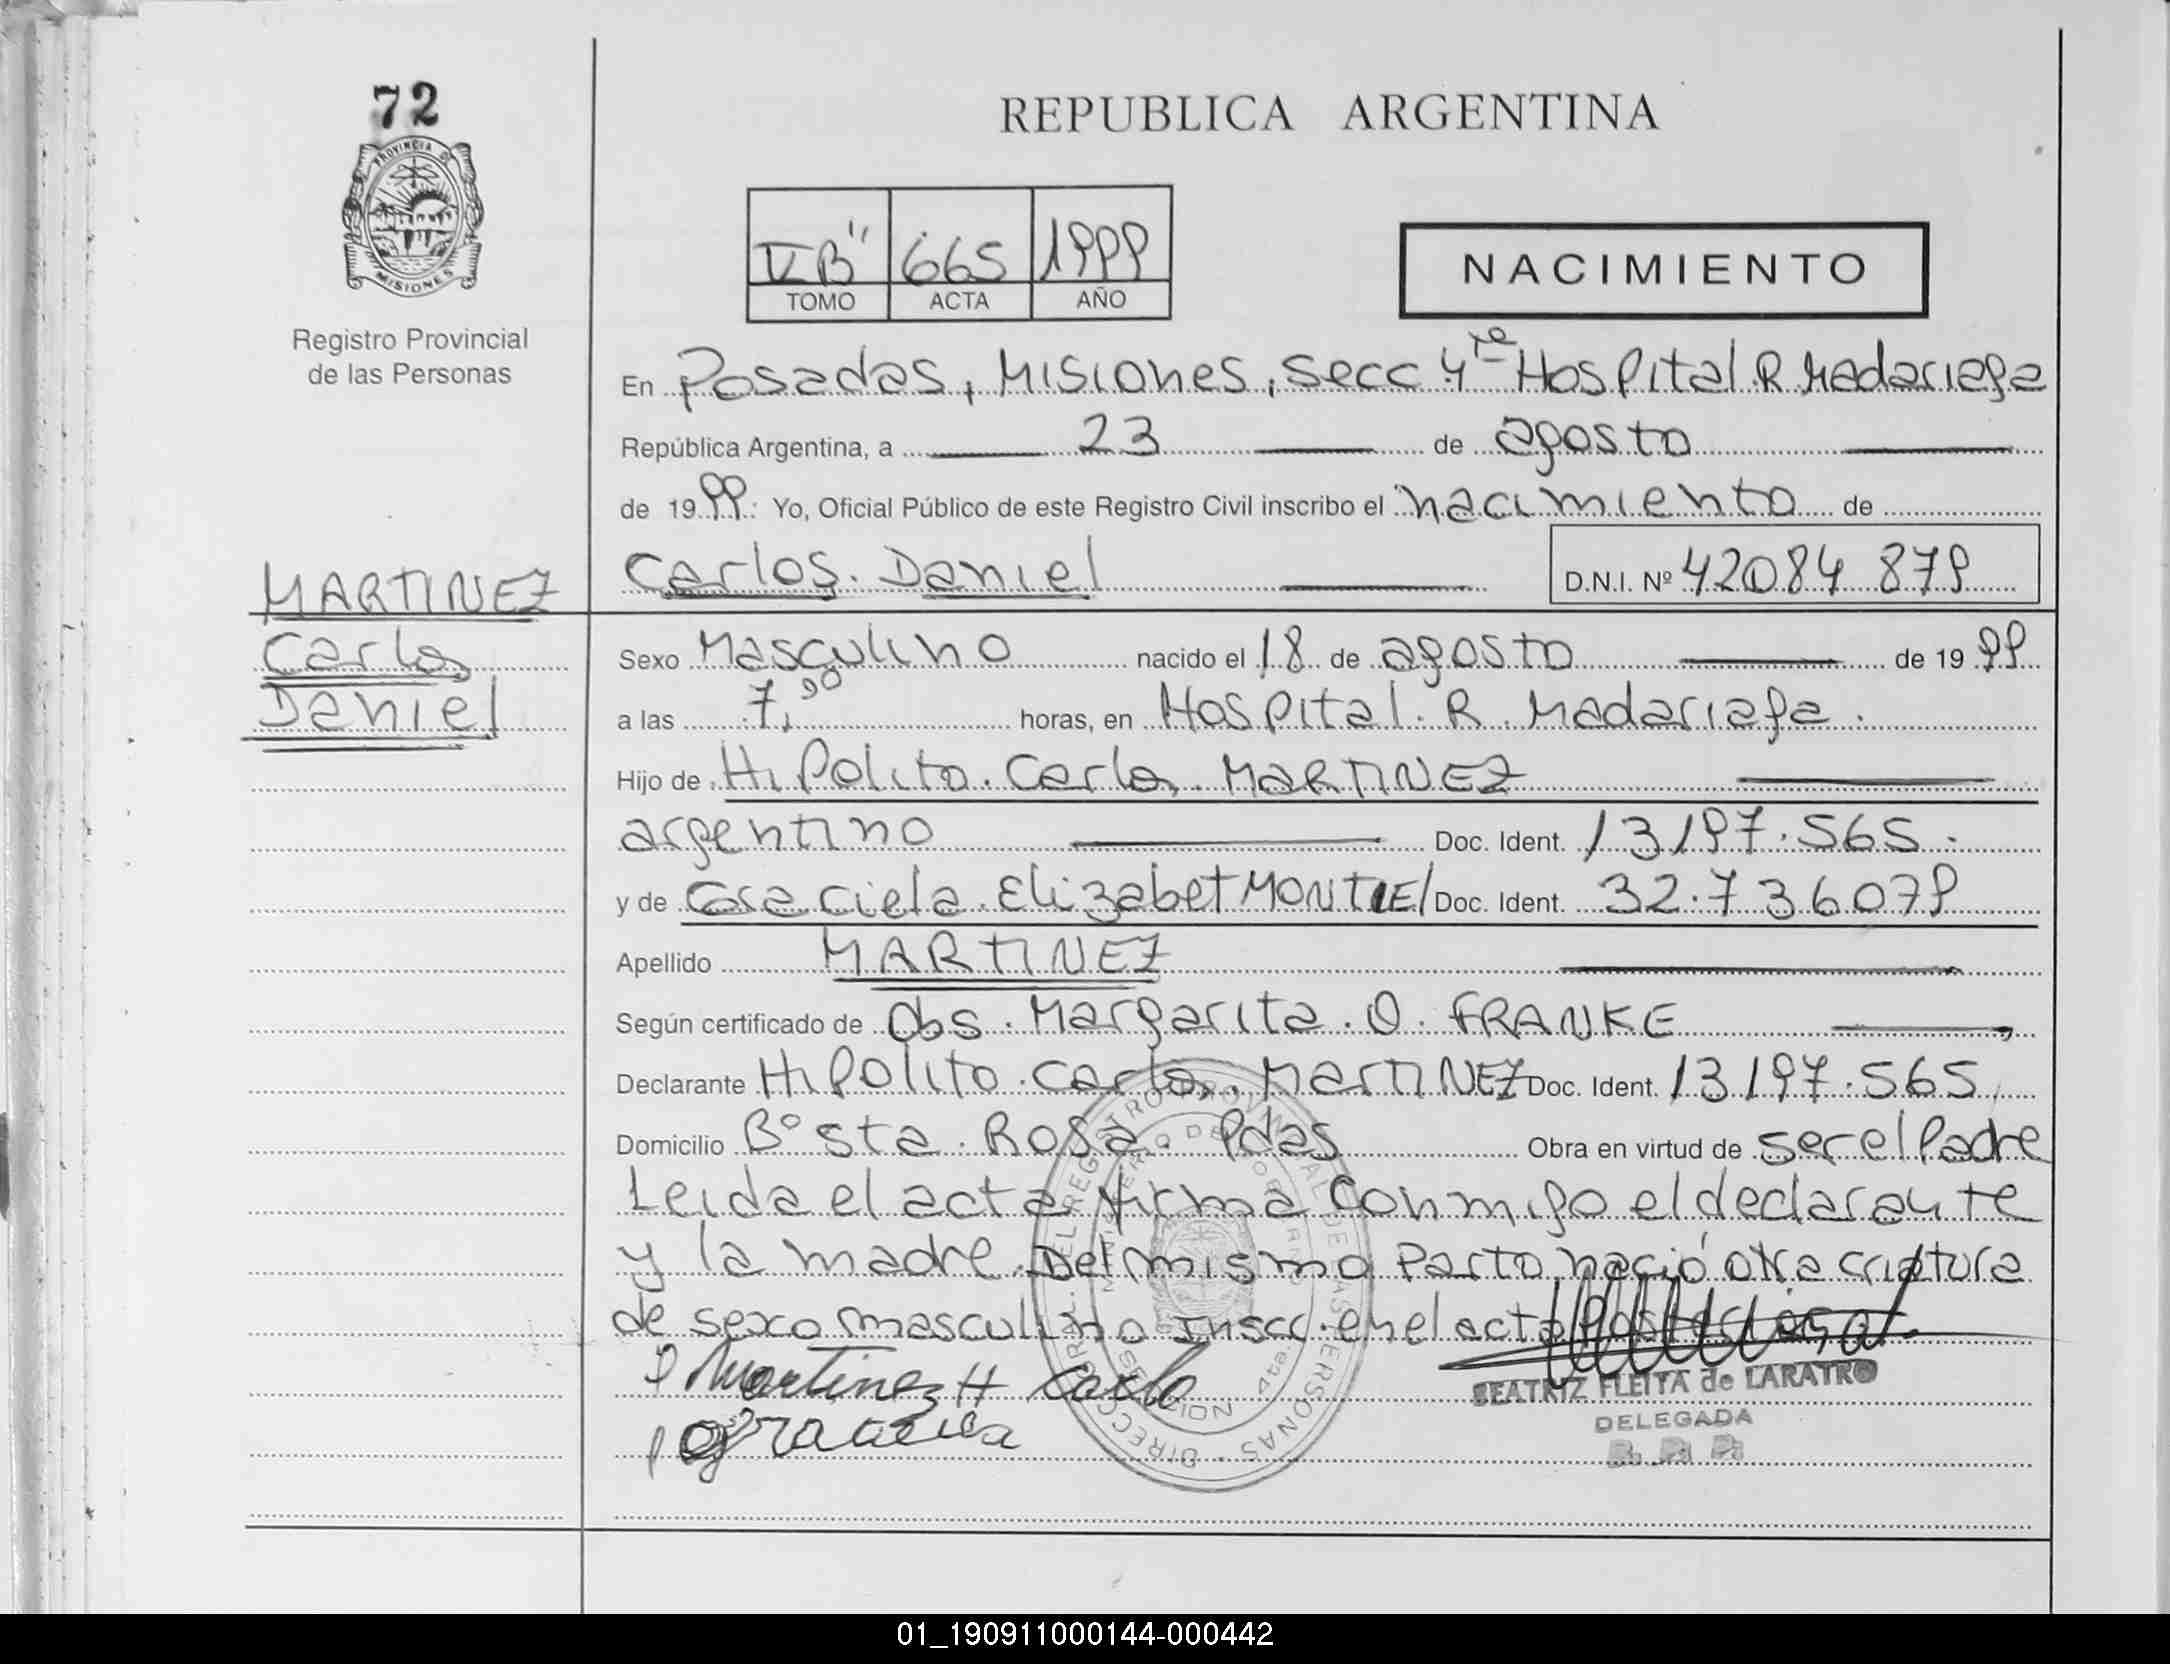 72
PROVINCIA DE
MISIONES
Registro Provincial
de las Personas
REPUBLICA ARGENTINA
V"B" 665 1999
TOMO ACTA AÑO
NACIMIENTO
En Posadas, Misiones, secc 4ta Hospital R Madariaga
República Argentina, a 23 de agosto
de 1999: Yo, Oficial Público de este Registro Civil inscribo el nacimiento de
Carlos Daniel D.N.I. Nº 42084 879
MARTINEZ
Carlos
Daniel
Sexo Masculino nacido el 18 de agosto de 1999
a las 7,30 horas, en Hospital R. Madariaga.
Hijo de Hipolito Carlos MARTINEZ
argentino Doc. Ident. 13197.565.
y de Graciela Elizabet MONTIEL Doc. Ident. 32.736079
Apellido MARTINEZ
Según certificado de Obs. Margarita O. FRANKE,
Declarante Hipolito Carlos MARTINEZ Doc. Ident. 13197.565,
Domicilio Bº Sta. Rosa. Pdas Obra en virtud de ser el Padre
Leida el acta firma conmigo el declarante
y la madre. Del mismo Parto nació otra criatura
de sexo masculino Inscc. en el acta
Martinez H Carlo
graciela
BEATRIZ FLEITA de LARATRO
DELEGADA
R. P. P.
01_190911000144-000442